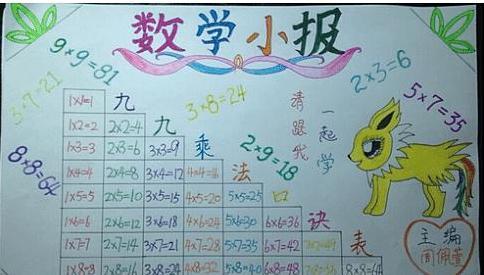 数学小报
9×9=81
3×7=21
3×8=24
2×3=6
5×7=35
8×8=64
2×9=18
请跟我
一起学
九九乘法口诀表
1×1=1
1×2=2 2×2=4
1×3=3 2×3=6 3×3=9
1×4=4 2×4=8 3×4=12 4×4=16
1×5=5 2×5=10 3×5=15 4×5=20 5×5=25
1×6=6 2×6=12 3×6=18 4×6=24 5×6=30 6×6=36
1×7=7 2×7=14 3×7=21 4×7=28 5×7=35 6×7=42 7×7=49
1×8=8 2×8=16 3×8=24 4×8=32 5×8=40 6×8=48 8×8=64
主编